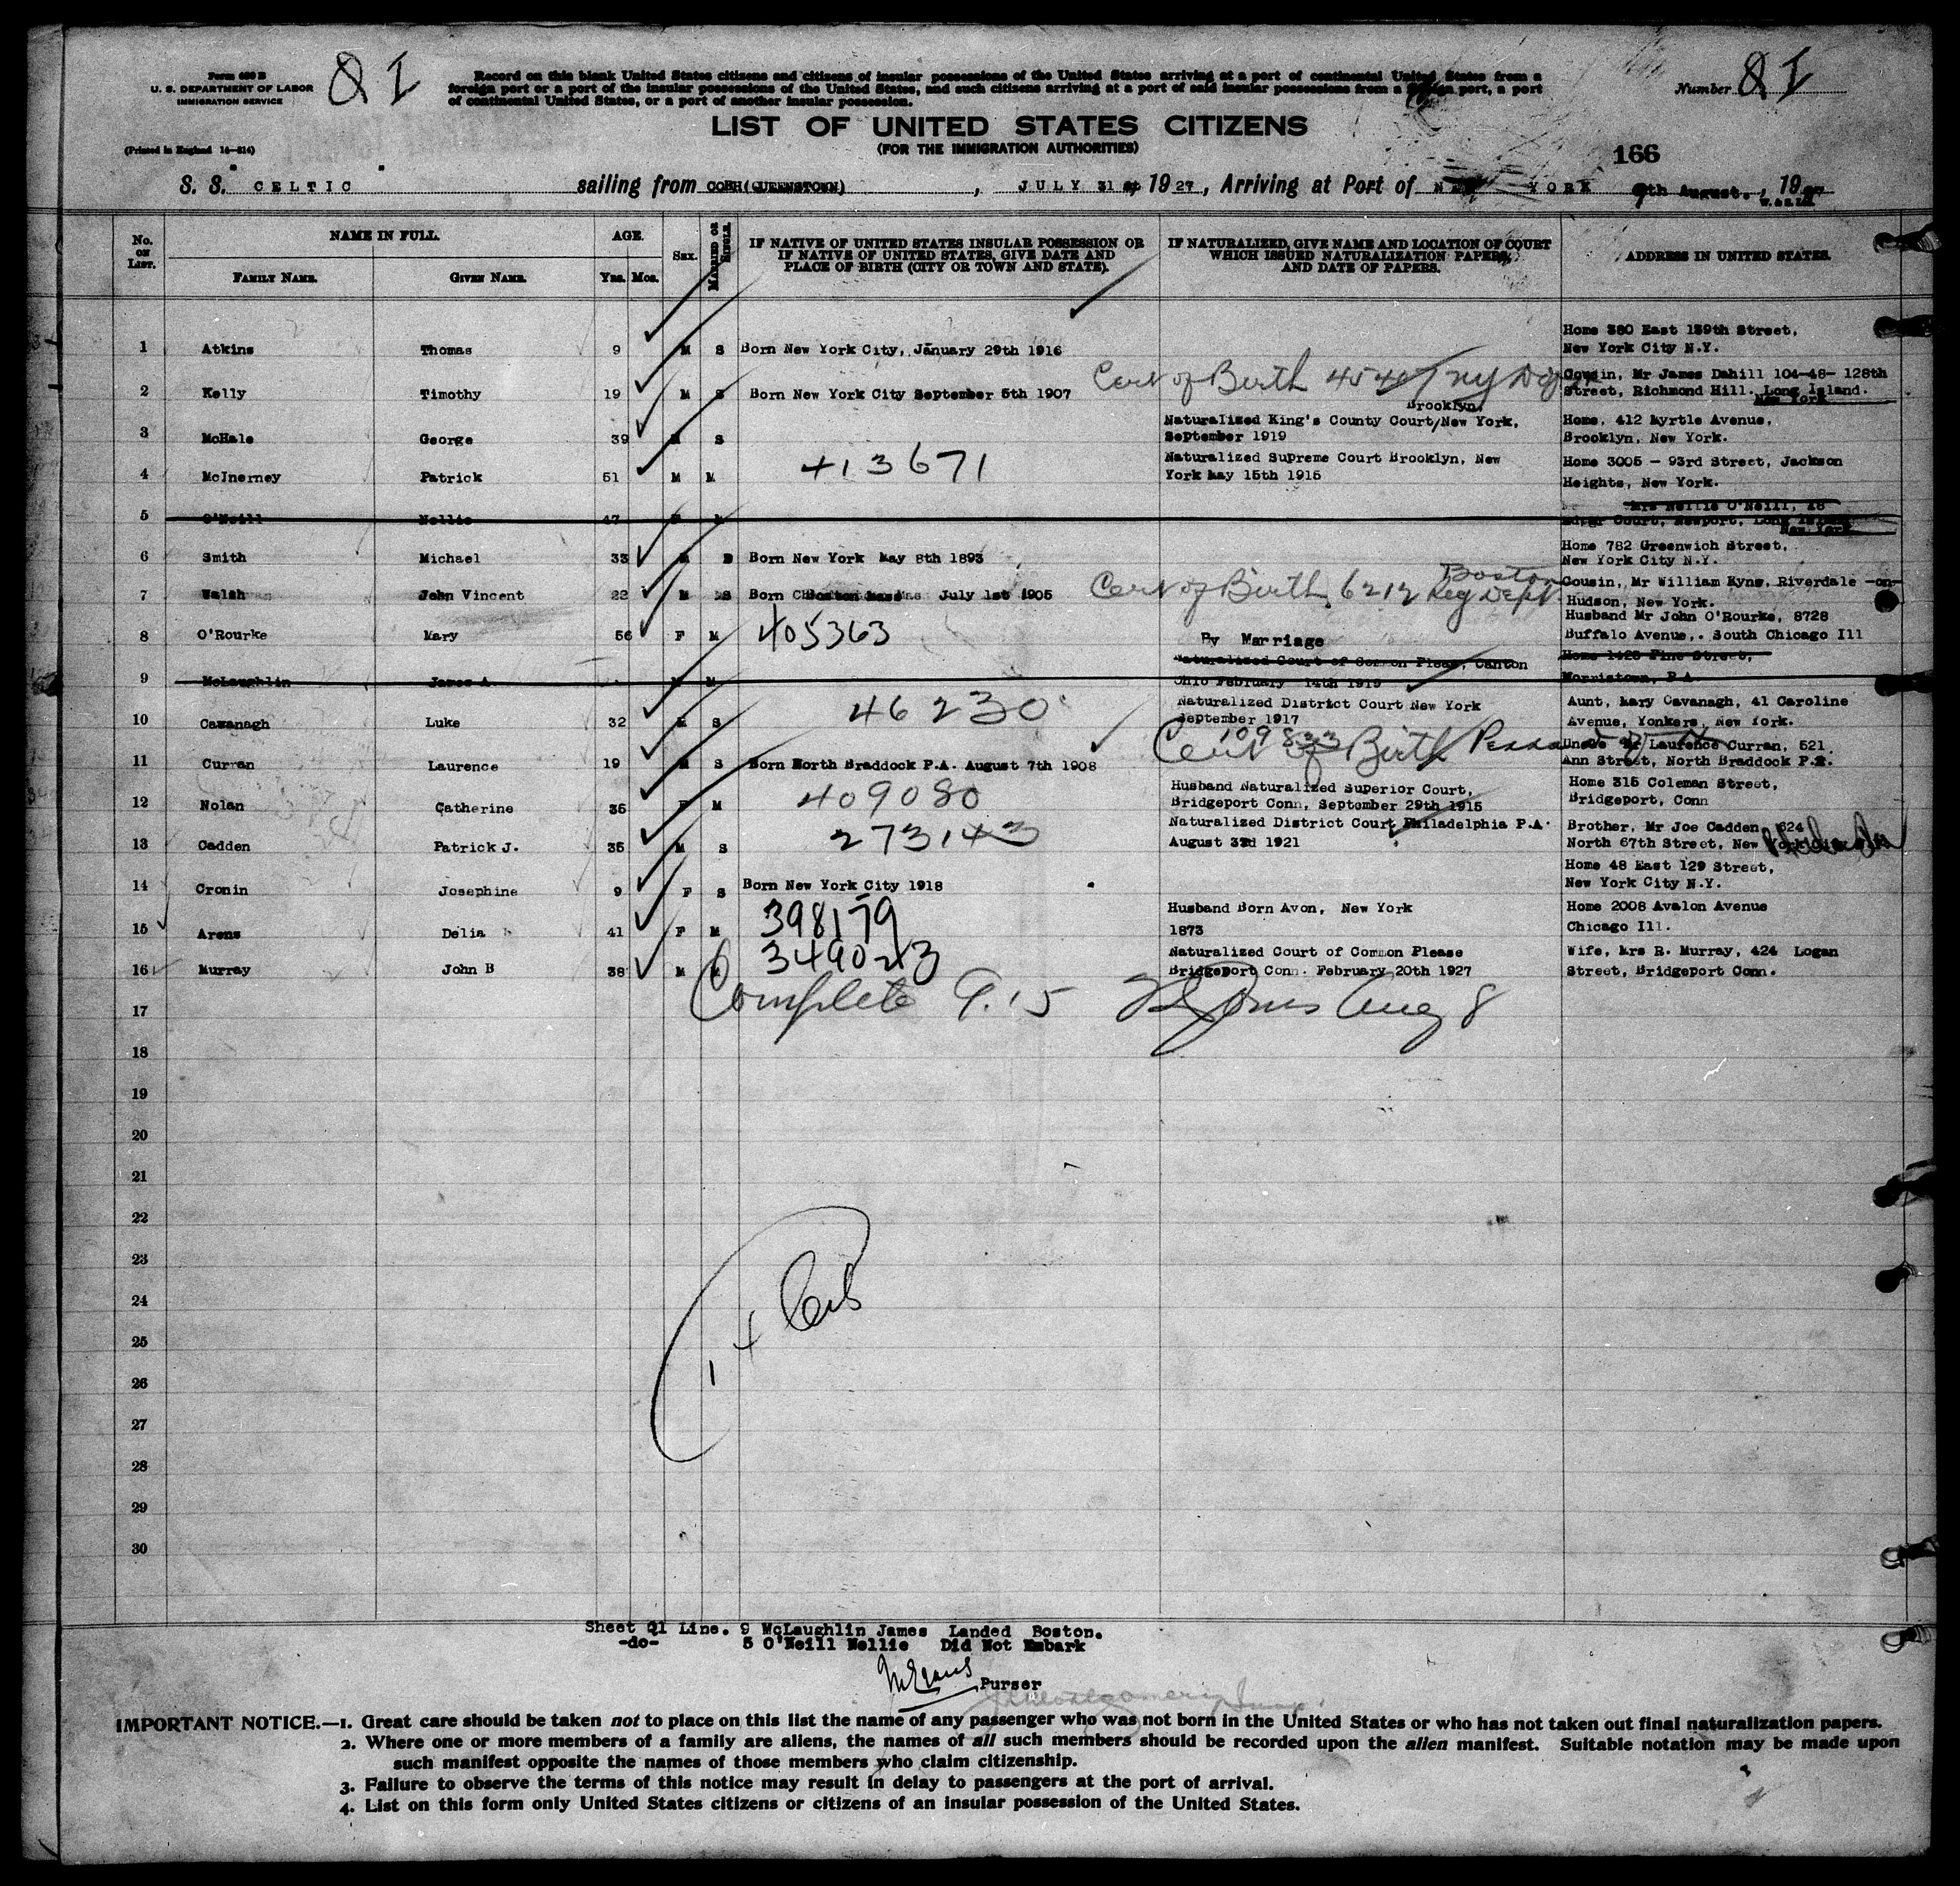 Form 630 B
U. S. DEPARTMENT OF LABOR
IMMIGRATION SERVICE
Q I
Record on this blank United States citizens and citizens of insular possessions of the United States arriving at a port of continental United States from a
foreign port or a port of the insular possessions of the United States, and such citizens arriving at a port of said insular possessions from a foreign port, a port
of continental United States, or a port of another insular possession.
Number Q I
LIST OF UNITED STATES CITIZENS
(FOR THE IMMIGRATION AUTHORITIES)
(Printed in England 14—814)
166
S. S. "CELTIC" sailing from COBH(QUEENSTOWN), JULY 31 st 1927, Arriving at Port of NEW YORK 7th August., 1927
No. ON LIST. NAME IN FULL. AGE. SEX. MARRIED OR SINGLE. IF NATIVE OF UNITED STATES INSULAR POSSESSION OR IF NATIVE OF UNITED STATES, GIVE DATE AND PLACE OF BIRTH (CITY OR TOWN AND STATE). IF NATURALIZED, GIVE NAME AND LOCATION OF COURT WHICH ISSUED NATURALIZATION PAPERS, AND DATE OF PAPERS. ADDRESS IN UNITED STATES.
FAMILY NAME. GIVEN NAME. YRS. MOS.
Home 380 East 139th Street,
1 Atkins Thomas 9 M S Born New York City, January 29th 1916 New York City N.Y.
Cert of Birth Cousin, Mr James Dahill 104-48- 128th
2 Kelly Timothy 19 M S Born New York City September 5th 1907 Street, Richmond Hill. Long Island.
New York
Brooklyn,
Naturalized King's County Court/New York, Home, 412 Myrtle Avenue,
3 McHale George 39 M S September 1919 Brooklyn, New York.
Naturalized Supreme Court Brooklyn, New Home 3005 - 93rd Street, Jackson
4 McInerney Patrick 51 M M 413671 York May 15th 1915 Heights, New York.
Mrs Nellie O'Neill, 28
5 O'Neill Nellie 47 F M Edgar Court, Newport, Long Island
New York
Home 782 Greenwich Street,
6 Smith Michael 33 M S Born New York May 8th 1893 New York City N.Y.
Cert of Birth 6212 Boston Reg Dept Cousin, Mr William Kyne, Riverdale -on-
7 Walsh John Vincent 22 M S Born Boston Mass July 1st 1905 Hudson, New York.
Husband Mr John O'Rourke, 8728
8 O'Rourke Mary 56 F M 405363 By Marriage Buffalo Avenue,. South Chicago Ill
Naturalized Court of Common Pleas, Canton Home 1428 Pine Street,
9 McLaughlin James A. M M Ohio February 14th 1919 Morristown, P.A.
Naturalized District Court New York Aunt, Mary Cavanagh, 41 Caroline
10 Cavanagh Luke 32 M S 46230 September 1917 Avenue, Yonkers, New York.
109833 Cert of Birth Uncle Mr Laurence Curran, 521
11 Curran Laurence 19 M S Born North Braddock P.A. August 7th 1908 Ann Street, North Braddock P.A.
Husband Naturalized Superior Court, Home 315 Coleman Street,
12 Nolan Catherine 35 F M 409080 Bridgeport Conn, September 29th 1915 Bridgeport, Conn
Naturalized District Court Philadelphia P.A. Brother, Mr Joe Cadden, 624
13 Cadden Patrick J. 35 M S 273143 August 3rd 1921 North 67th Street, New York Philadelphia
Home 48 East 129 Street,
14 Cronin Josephine 9 F S Born New York City 1918 New York City N.Y.
Husband Born Avon, New York Home 2008 Avalon Avenue
15 Arens Delia 41 F M 398179 1873 Chicago Ill.
Naturalized Court of Common Please Wife, Mrs R. Murray, 424 Logan
16 Murray John B 38 M M 349043 Bridgeport Conn. February 20th 1927 Street, Bridgeport Conn.
Complete 9.15 Aug 8
17
18
19
20
21
22
23
24
25
26
27
28
29
30
Sheet Q1 Line. 9 McLaughlin James Landed Boston.
-do- 5 O'Neill Nellie Did Not Embark
Purser
IMPORTANT NOTICE.—1. Great care should be taken not to place on this list the name of any passenger who was not born in the United States or who has not taken out final naturalization papers.
2. Where one or more members of a family are aliens, the names of all such members should be recorded upon the alien manifest. Suitable notation may be made upon
such manifest opposite the names of those members who claim citizenship.
3. Failure to observe the terms of this notice may result in delay to passengers at the port of arrival.
4. List on this form only United States citizens or citizens of an insular possession of the United States.